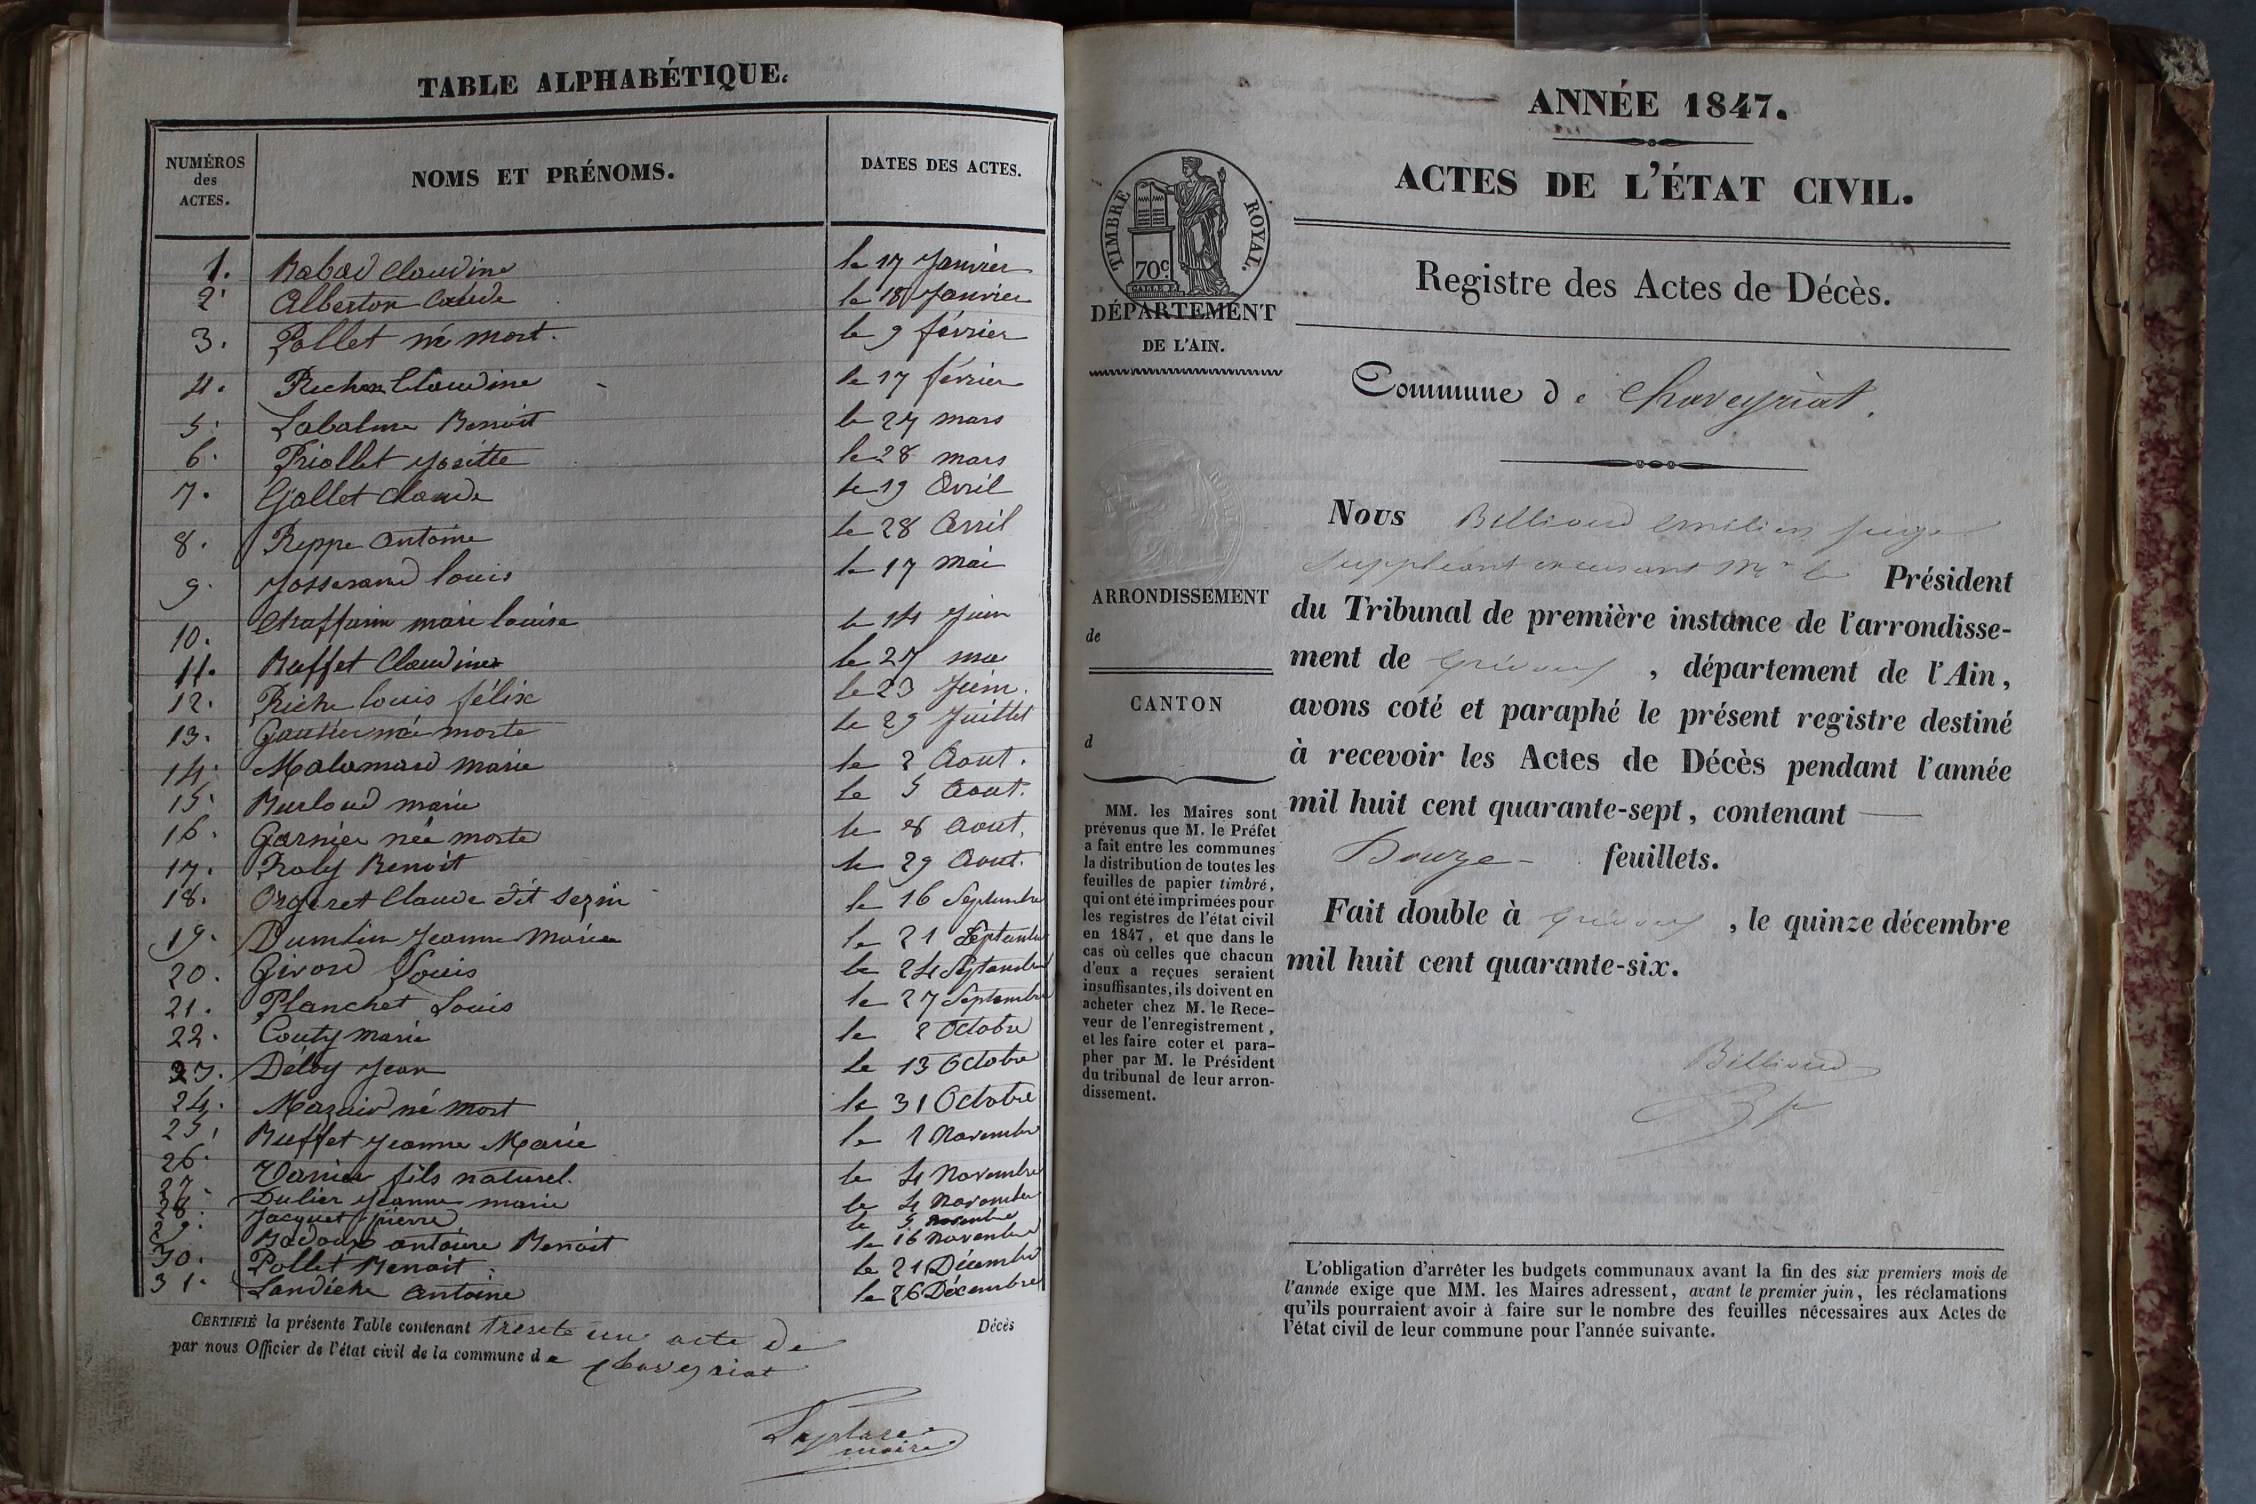 TABLE ALPHABÉTIQUE.
NUMÉROS
des
ACTES.
NOMS ET PRÉNOMS.
DATES DES ACTES.
1. Babad Claudine le 17 Janvier
2. Alberton Claude le 18 Janvier
3. Pollet né mort. le 9 février
4. Claudine le 17 février
5. Labalme Benoit le 27 mars
6. Priollet Josette le 28 mars
7. Gallet Claude le 19 Avril
8. Reppe Antoine le 28 Avril
9. Josserand Louis le 17 Mai
10. Chaffurin marie Louise le 14 Juin
11. Buffet Claudine le 27
12. Riche Louis félix le 23 Juin.
13. Gautier née morte le 29 Juillet
14. Malamard Marie le 2 Aout.
15. Burloud marie le 5 Aout.
16. Garnier née morte le 8 Aout.
17. Broly Benoit le 29 Aout.
18. Orgeret Claude dit Sezin le 16 Septembre
19. Jeanne Marie le 21 Septembre
20. Givord Louis le 24 Septembre
21. Planchet Louis le 27 Septembre
22. Couty Marie le 2 Octobre
23. Déloy Jean le 13 Octobre
24. né mort le 31 Octobre
25. Buffet Jeanne Marie le 1 Novembre
26. Vanier fils naturel. le 4 Novembre
27. Dulier Jeanne marie le 4 Novembre
28. Jacquet pierre le 5 Novembre
29. Badoux antoine Benoit le 16 Novembre
30. Pollet Benoit le 21 Décembre
31. Landiche Antoine le 26 Décembre
CERTIFIÉ la présente Table contenant trente un acte de Décès
par nous Officier de l'état civil de la commune de Chaveyriat
Laplace
maire
ANNÉE 1847.
ACTES DE L'ÉTAT CIVIL.
TIMBRE ROYAL.
70c.
DÉPARTEMENT
DE L'AIN.
Registre des Actes de Décès.
Commune de Chaveyriat.
ARRONDISSEMENT
de
CANTON
d
MM. les Maires sont
prévenus que M. le Préfet
a fait entre les communes
la distribution de toutes les
feuilles de papier timbré,
qui ont été imprimées pour
les registres de l'état civil
en 1847, et que dans le
cas où celles que chacun
d'eux a reçues seraient
insuffisantes, ils doivent en
acheter chez M. le Rece-
veur de l'enregistrement,
et les faire coter et para-
pher par M. le Président
du tribunal de leur arron-
dissement.
Nous Billioud Emilien juge
suppléant M.r le Président
du Tribunal de première instance de l'arrondisse-
ment de Trévoux, département de l'Ain,
avons coté et paraphé le présent registre destiné
à recevoir les Actes de Décès pendant l'année
mil huit cent quarante-sept, contenant
Douze feuillets.
Fait double à Trévoux, le quinze décembre
mil huit cent quarante-six.
Billioud
L'obligation d'arrêter les budgets communaux avant la fin des six premiers mois de
l'année exige que MM. les Maires adressent, avant le premier juin, les réclamations
qu'ils pourraient avoir à faire sur le nombre des feuilles nécessaires aux Actes de
l'état civil de leur commune pour l'année suivante.